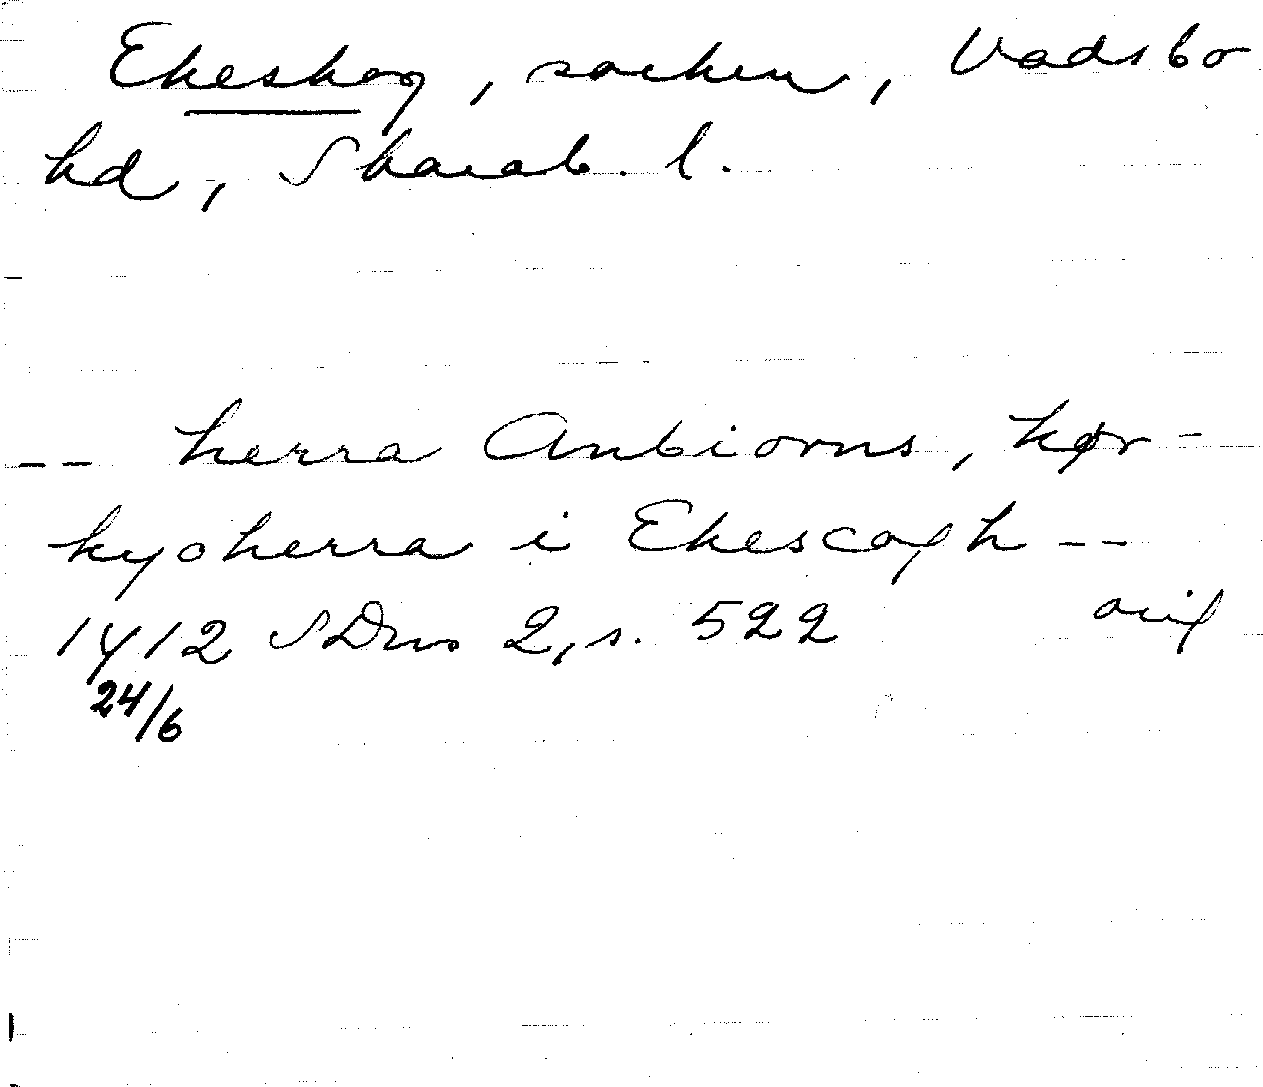 Ekeskog, socken, Vadsbo
hd, Skarab. l.
-- herra Anbiorns, kør-
kyoherra i Ekescogh --
1412 SDns 2, s. 522 orig
24/6